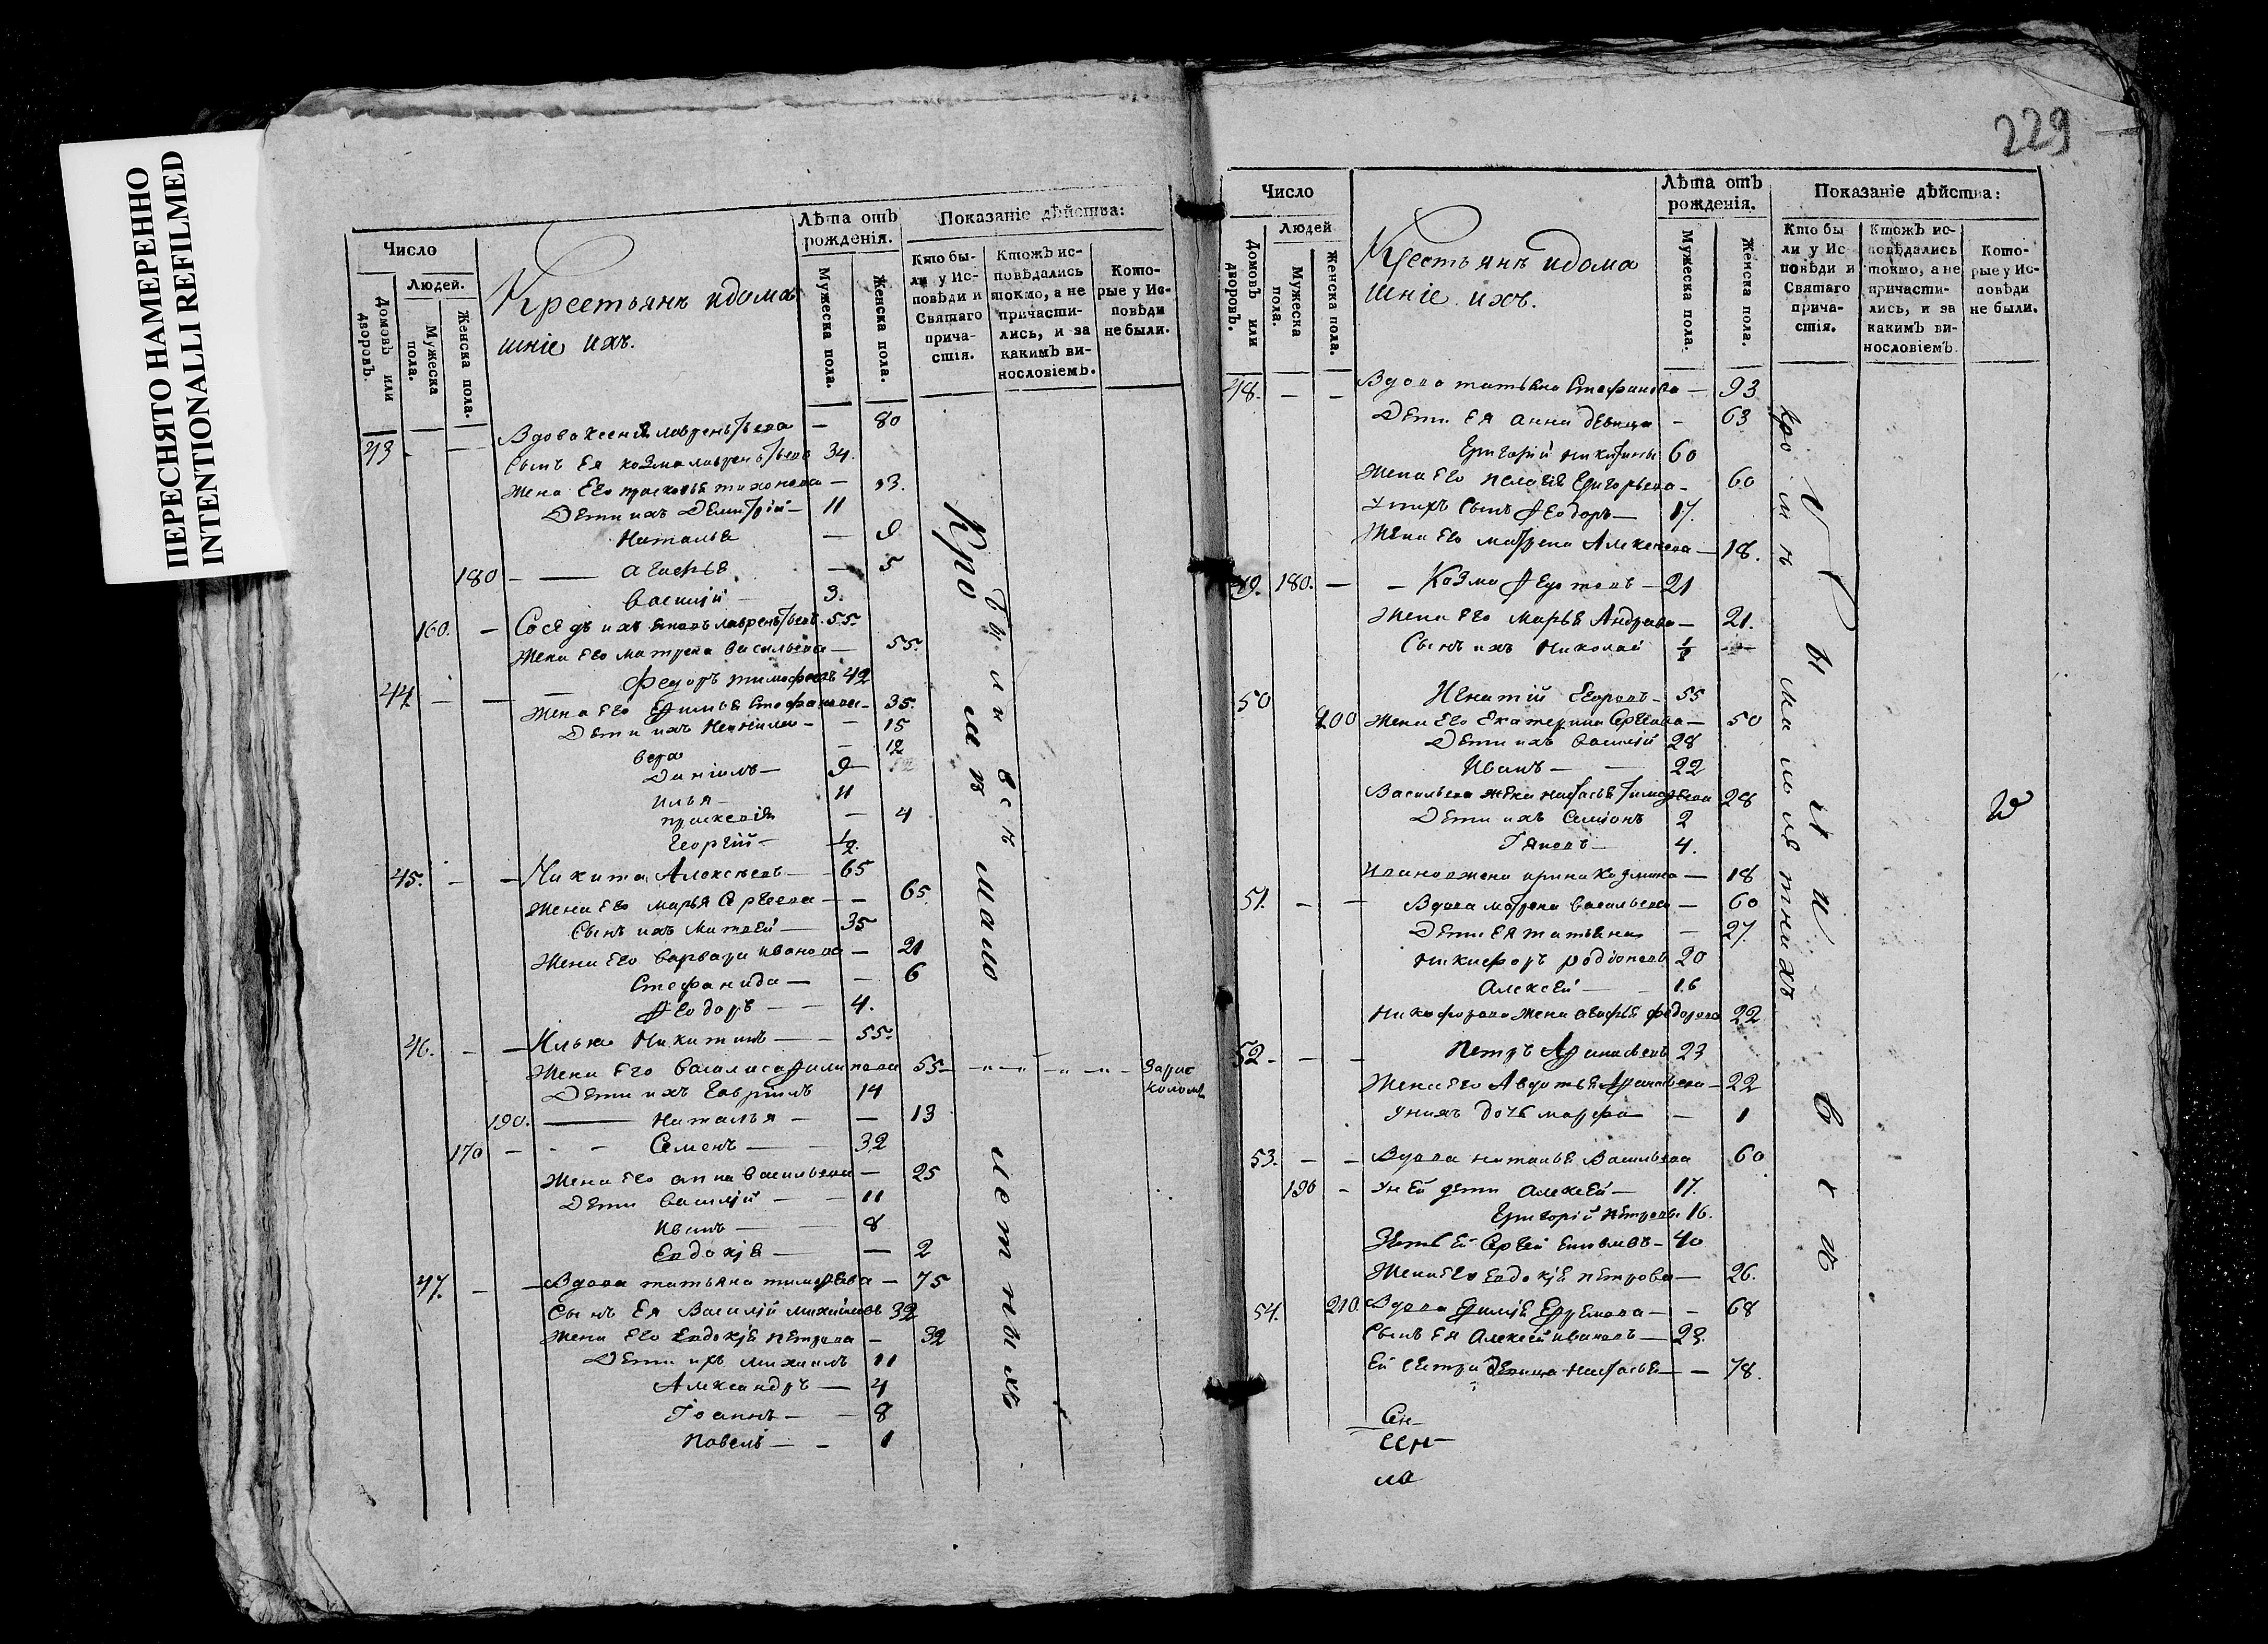 ПЕРЕСНЯТО НАМЕРЕННО
INTENTIONALLI REFILMED
Число
Домовъ или дворовъ.
Людей.
Мужеска пола.
Женска пола.
Крестьянъ и дома
шніе ихъ.
Лѣта отъ рожденія.
Мужеска пола.
Женска пола.
Показаніе дѣйства:
Кто бы-
ли у Ис-
повѣди и
Святаго
прича-
стія.
Ктожъ ис-
повѣдались
токмо, а не
причасти-
лись, и за
какимъ ви-
нословіемъ.
Кото-
рые у Ис-
повѣди
не были.
Вдова Ксенія лаврентьева — 80
43 Сынъ Ея козма лаврентьевъ 34.
Жена Его прасковья тихонова —
Дети ихъ Димитрій — 11
Наталья — 9
180 — агафья — 5
Василій — 3.
160. — Соседъ ихъ яковъ лаврентьевъ 55.
Жена Его матрена васильева — 55.
44 — — Федоръ тимофеевъ 42
Жена Его Ефимья Стефанова — 35.
Дети ихъ Неонила — — 15
вера — 12
Даніилъ — 9
илья — 11
праскевія — 4
Георгій — 1/2.
45. — — Никита Алексеевъ — 65
Жена Его марья Сергеева — — 65.
Сынъ ихъ Матвей — 35
Жена Его варвара иванова — 21
Стефанида — — 6
Феодоръ — — 4.
46. — — Илья Никитинъ — — 55.
Жена Его Василиса филипова 55 —
Дети ихъ Гавріилъ 14
190. — Наталья — — 13
170 — Семенъ — — 32
Жена Его анна васильева — 25
Дети василій — — 11
Иванъ — — 8
Евдокія — — 2
47. — — Вдова татьяна тимофеева — 75
Сынъ Ея Василій михайловъ 32
Жена Его Евдокія петрова — 32
Дети ихъ михаилъ 11
Александръ — 4
Іоаннъ — — 8
Павелъ — — 1
Кромѣ малолетныхъ
229
Число
Домовъ или дворовъ.
Людей
Мужеска пола.
Женска пола.
Крестьянъ и дома
шніе ихъ.
Лѣта отъ рожденія.
Мужеска пола.
Женска пола.
Показаніе дѣйства:
Кто бы
ли у Ис-
повѣди и
Святаго
прича-
стія.
Ктожъ ис-
повѣдались
токмо, а не
причасти-
лись, и за
какимъ ви-
нословіемъ.
Кото-
рые у Ис-
повѣди
не были.
48. — — Вдова татьяна Стефанова — 93
Дети Ея анна девица — 63
Григорій никитинъ 60
Жена Его пелагія Григорьева — 60
У нихъ сынъ Феодоръ — 17.
Жена Его матрена Алексеева — 18.
49. 180. — — Козма Федотовъ — 21
Жена Его Марья Андреева — 21.
Сынъ ихъ Николай
50 Игнатій Егоровъ — 55
200 Жена Его Екатерина Сергеева — 50
Дети ихъ василій 28
Иванъ — — 22
Васильева жена настасья тимофеева 28
Дети ихъ Симіонъ 2
Іаковъ — 4.
Иванова жена ирина Козмина — 18
51. — — Вдова матрена васильева — 60
Дети Ея татьяна — 27.
никифоръ родіоновъ 20
Алексей — — 16
Никифорова жена агафья федорова 22
52 — — — Петръ Афанасьевъ 23
Жена Его Авдотья Афанасьева — 22
У нихъ дочь марфа — 1
53. — — Вдова наталья Васильева 60
190 — У ней дети алексей — 17.
Григорій петровъ 16.
Зять Ей Сергей — 40
Жена Его Евдокія петрова — 26.
54. 210. Вдова Ефимія Ефремова — — 68
Сынъ Ея Алексей ивановъ — 23.
Ей сестра девица настасья — — 78.
Кроме малолетнихъ